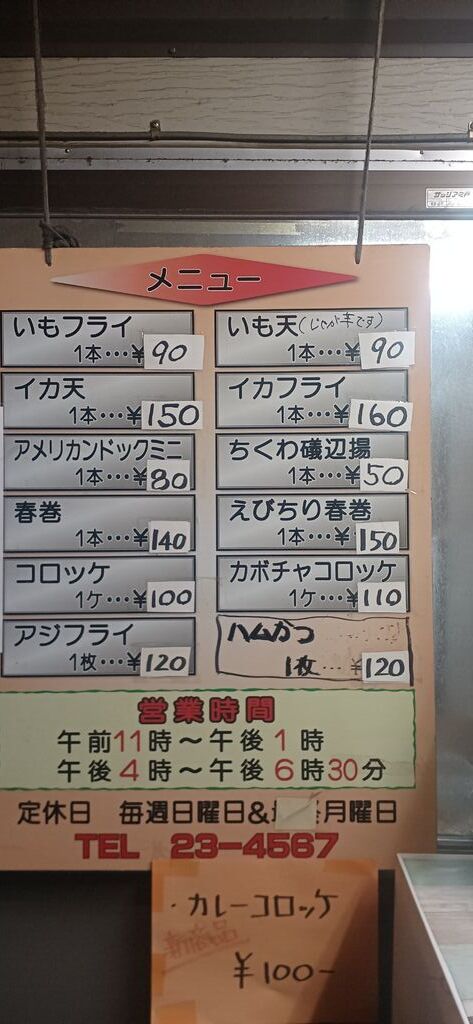 メニュー
いもフライ
1本…¥90
いも天(じゃが芋です)
1本…¥90
イカ天
1本…¥150
イカフライ
1本…¥160
アメリカンドックミニ
1本…¥80
ちくわ磯辺揚
1本…¥50
春巻
1本…¥140
えびちり春巻
1本…¥150
コロッケ
1ケ…¥100
カボチャコロッケ
1ケ…¥110
アジフライ
1枚…¥120
ハムかつ
1枚…¥120
営業時間
午前11時～午後1時
午後4時～午後6時30分
定休日 毎週日曜日& 月曜日
TEL 23-4567
・カレーコロッケ
新商品
¥100-